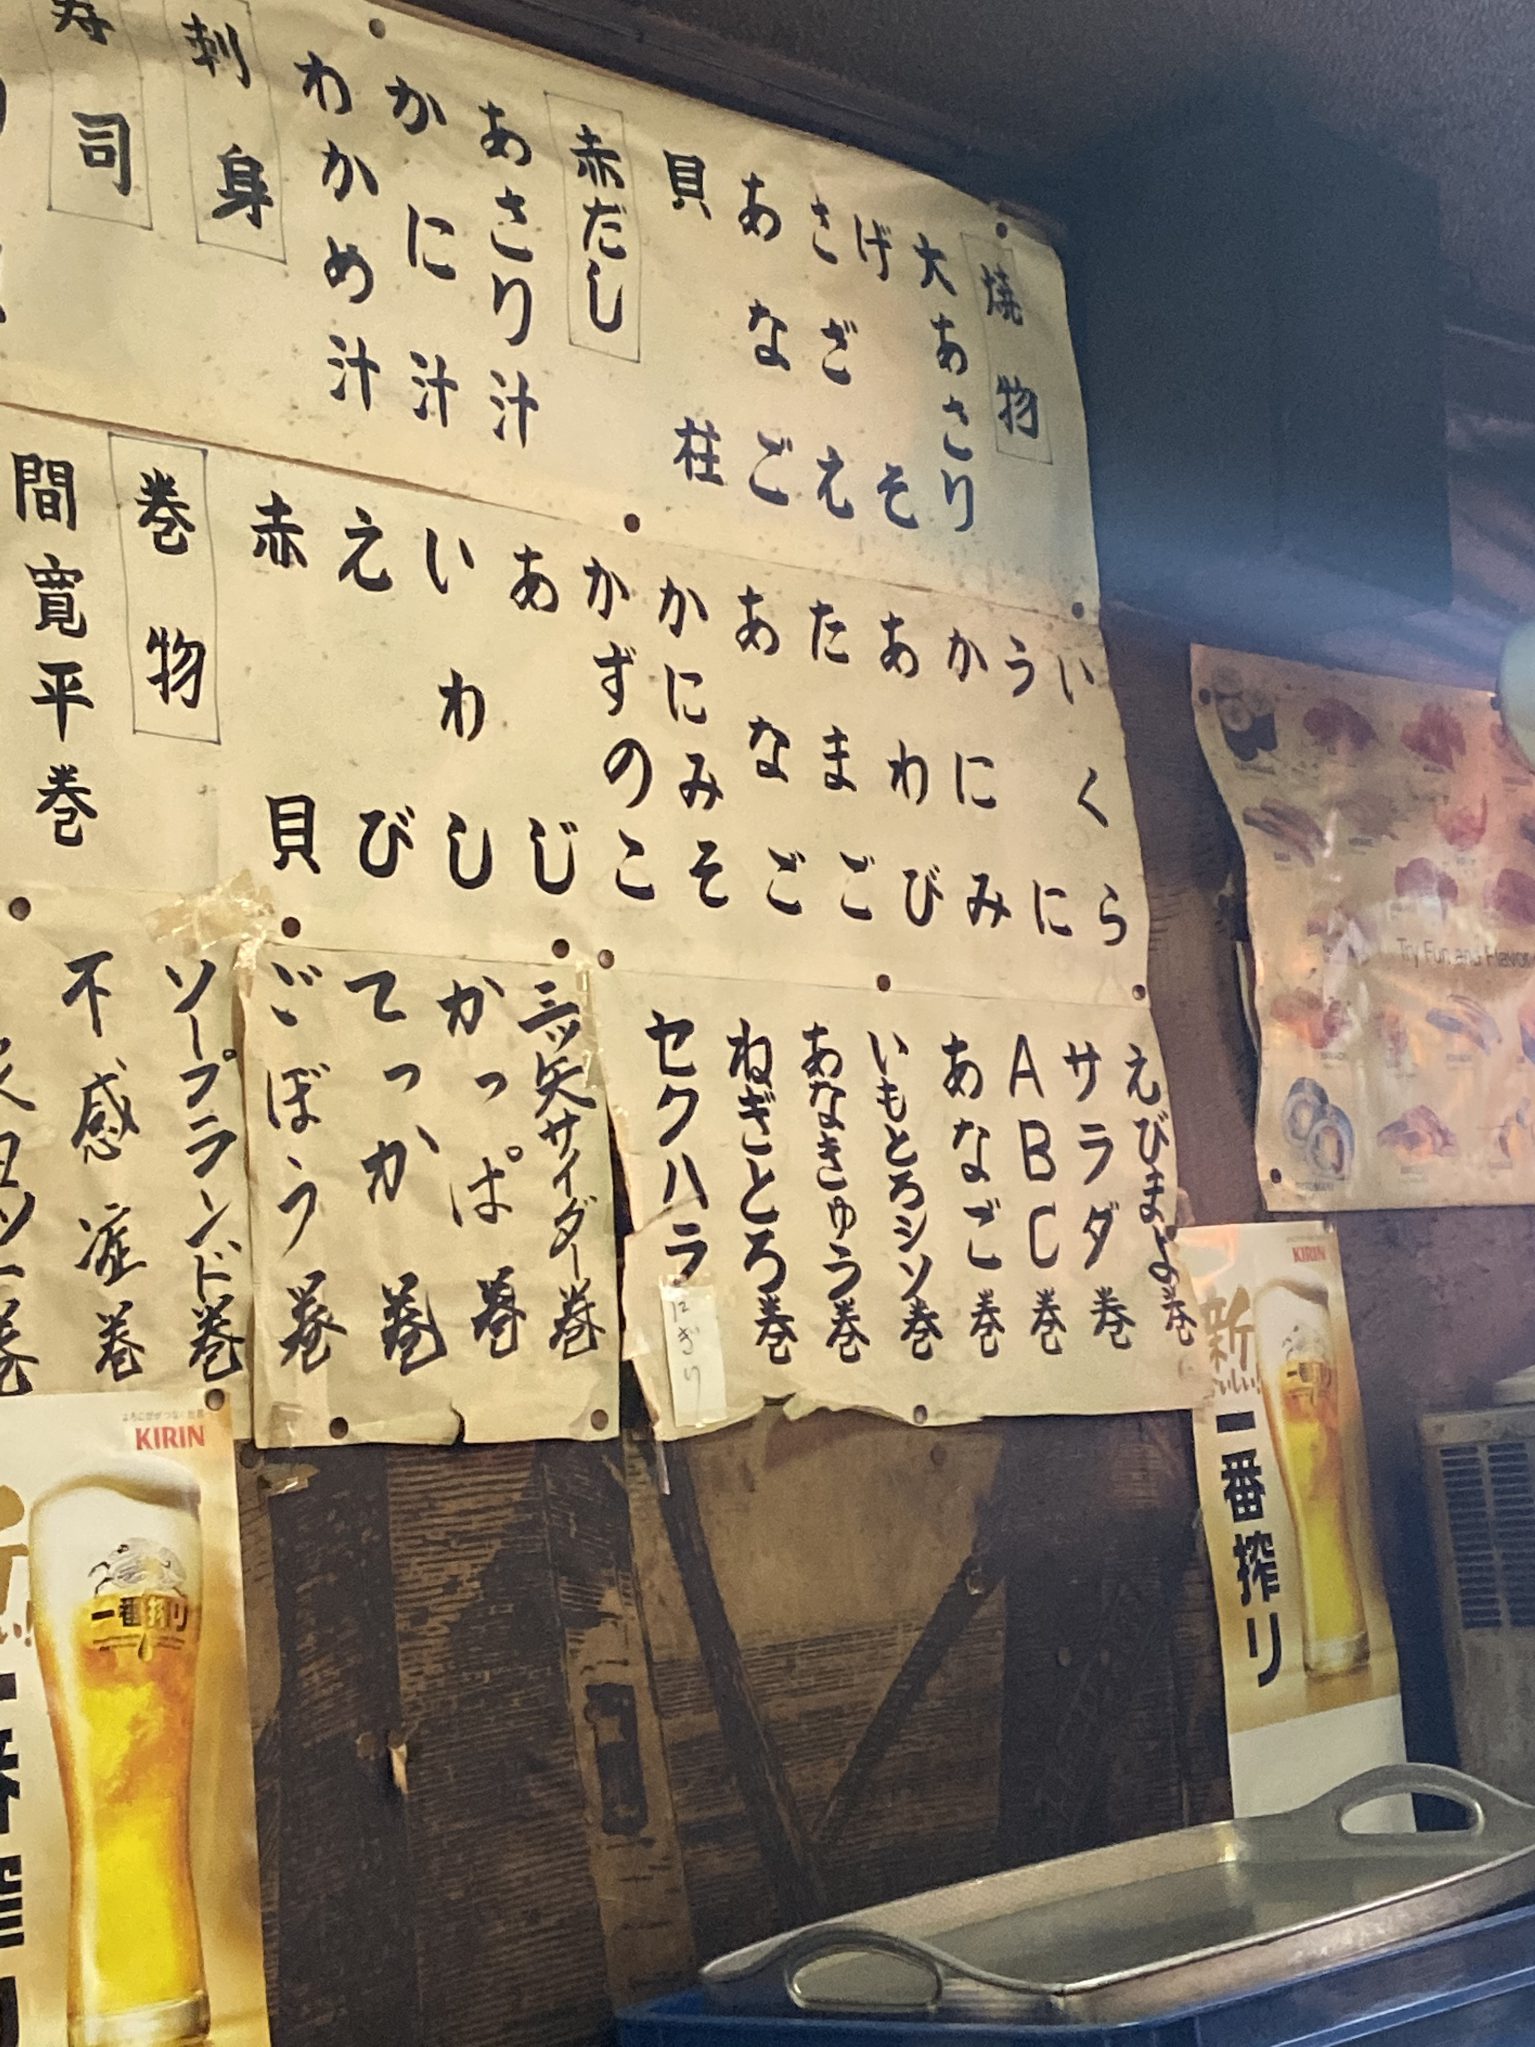 焼物
大あさり
げそ
さざえ
あなご
貝柱
赤だし
あさり汁
かに汁
わかめ汁
刺身
寿司
いくら
うに
かにみ
あわび
たまご
あなご
かにみそ
かずのこ
あじ
いわし
えび
赤貝
巻物
間寛平巻
えびまよ巻
サラダ巻
ABC巻
あなご巻
いもとろシソ巻
あなきゅう巻
ねぎとろ巻
セクハラ
にぎり
三ッ矢サイダー巻
かっぱ巻
てっか巻
ごぼう巻
ソープランド巻
不感症巻
Try Fun and Flavor
KIRIN
新
おいしい!
一番搾り
よろこびがつなぐ世界
KIRIN
一番搾り